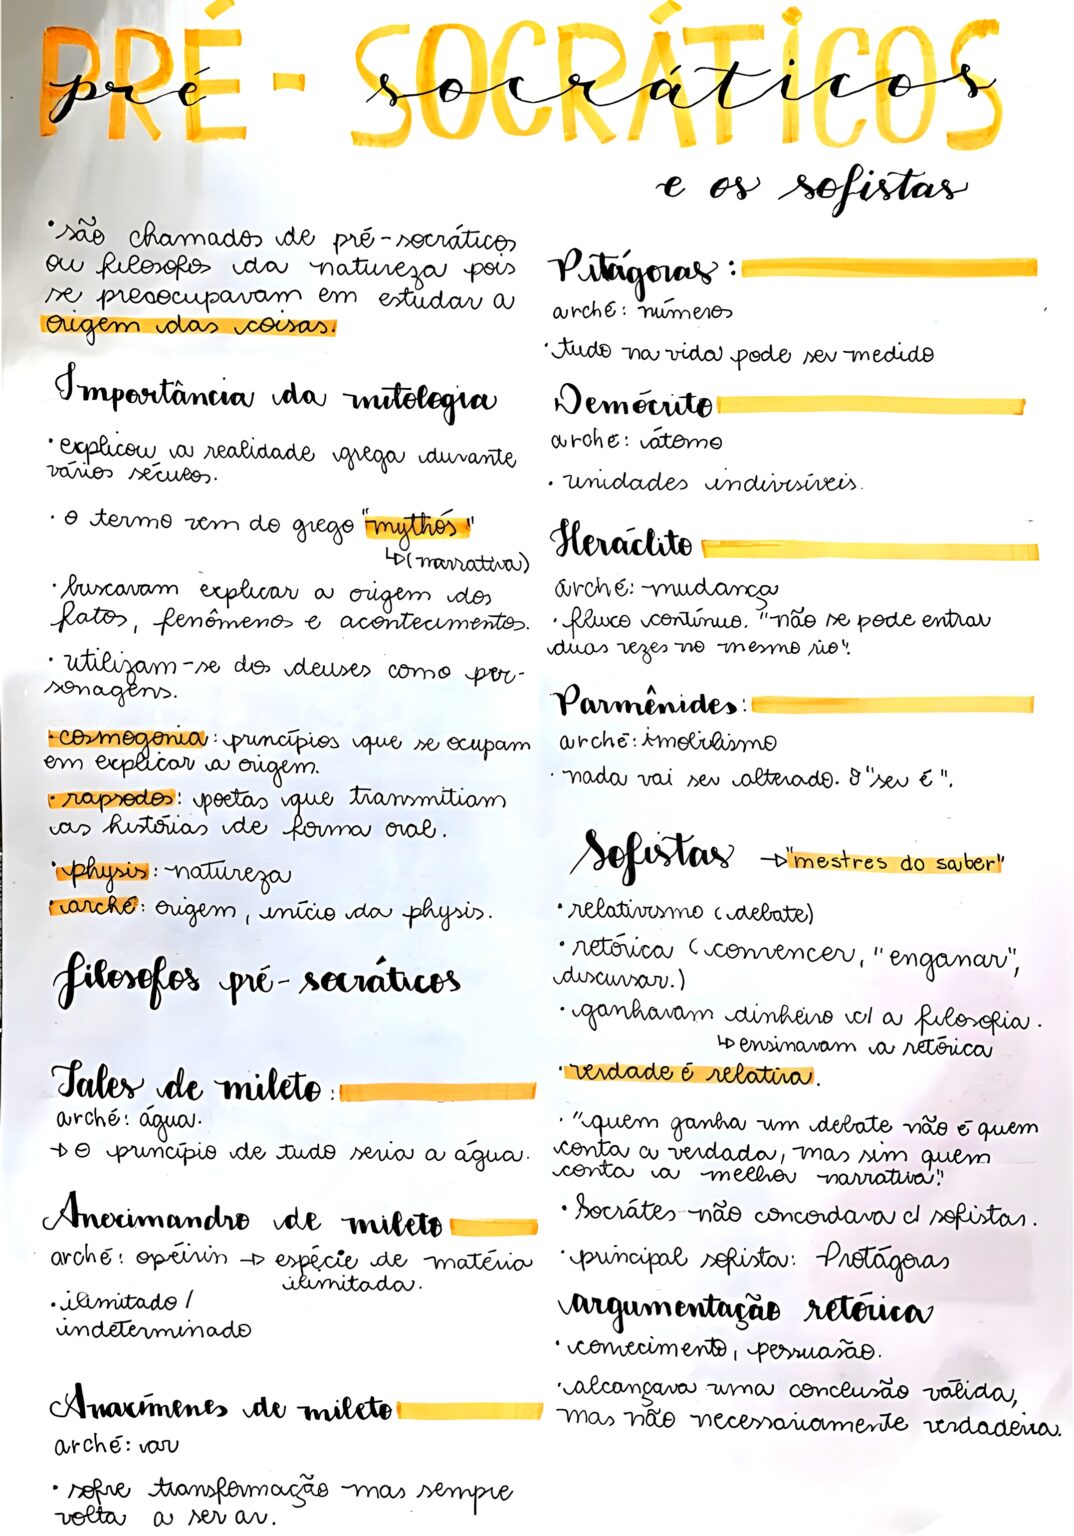 PRÉ-SOCRÁTICOS
pré socráticos
e os sofistas
·são chamados de pré-socráticos
ou filosofos da natureza pois
se preocupavam em estudar a
origem das coisas.
Importância da mitologia
·explicou a realidade grega durante
vários séculos.
·o termo vem do grego "mythós"
↳(narrativa)
·buscavam explicar a origem dos
fatos, fenômenos e acontecimentos.
·utilizam-se dos deuses como per-
sonagens.
·cosmogonia: princípios que se ocupam
em explicar a origem.
·rapsodos: poetas que transmitiam
as histórias de forma oral.
·physis: natureza
·arché: origem, início da physis.
filosofos pré-socráticos
Tales de mileto:
arché: água.
→o princípio de tudo seria a água.
Aneximandro de mileto
arché: opéirin → espécie de matéria
ilimitada.
·ilimitado /
indeterminado
Anaxímenes de mileto
arché: ar
·sofre transformação mas sempre
volta a ser ar.
Pitágoras:
arché: números
·tudo na vida pode ser medido
Demócrito
arché: átomo
·unidades indivisíveis.
Heráclito
arché: mudança
·fluxo contínuo. "não se pode entrar
duas vezes no mesmo rio".
Parmênides:
arché: imobilismo
·nada vai ser alterado. O "ser é".
Sofistas → "mestres do saber"
·relativismo (debate)
·retórica (convencer, "enganar",
discursar.)
·ganhavam dinheiro c/ a filosofia.
↳ensinavam a retórica
·verdade é relativa.
·"quem ganha um debate não é quem
conta a verdada, mas sim quem
conta a melhor narrativa"
·Socrátes não concordava c/ sofistas.
·principal sofista: Protágoras
argumentação retórica
·comecimento, persuasão.
·alcançava uma conclusão válida,
mas não necessariamente verdadeira.